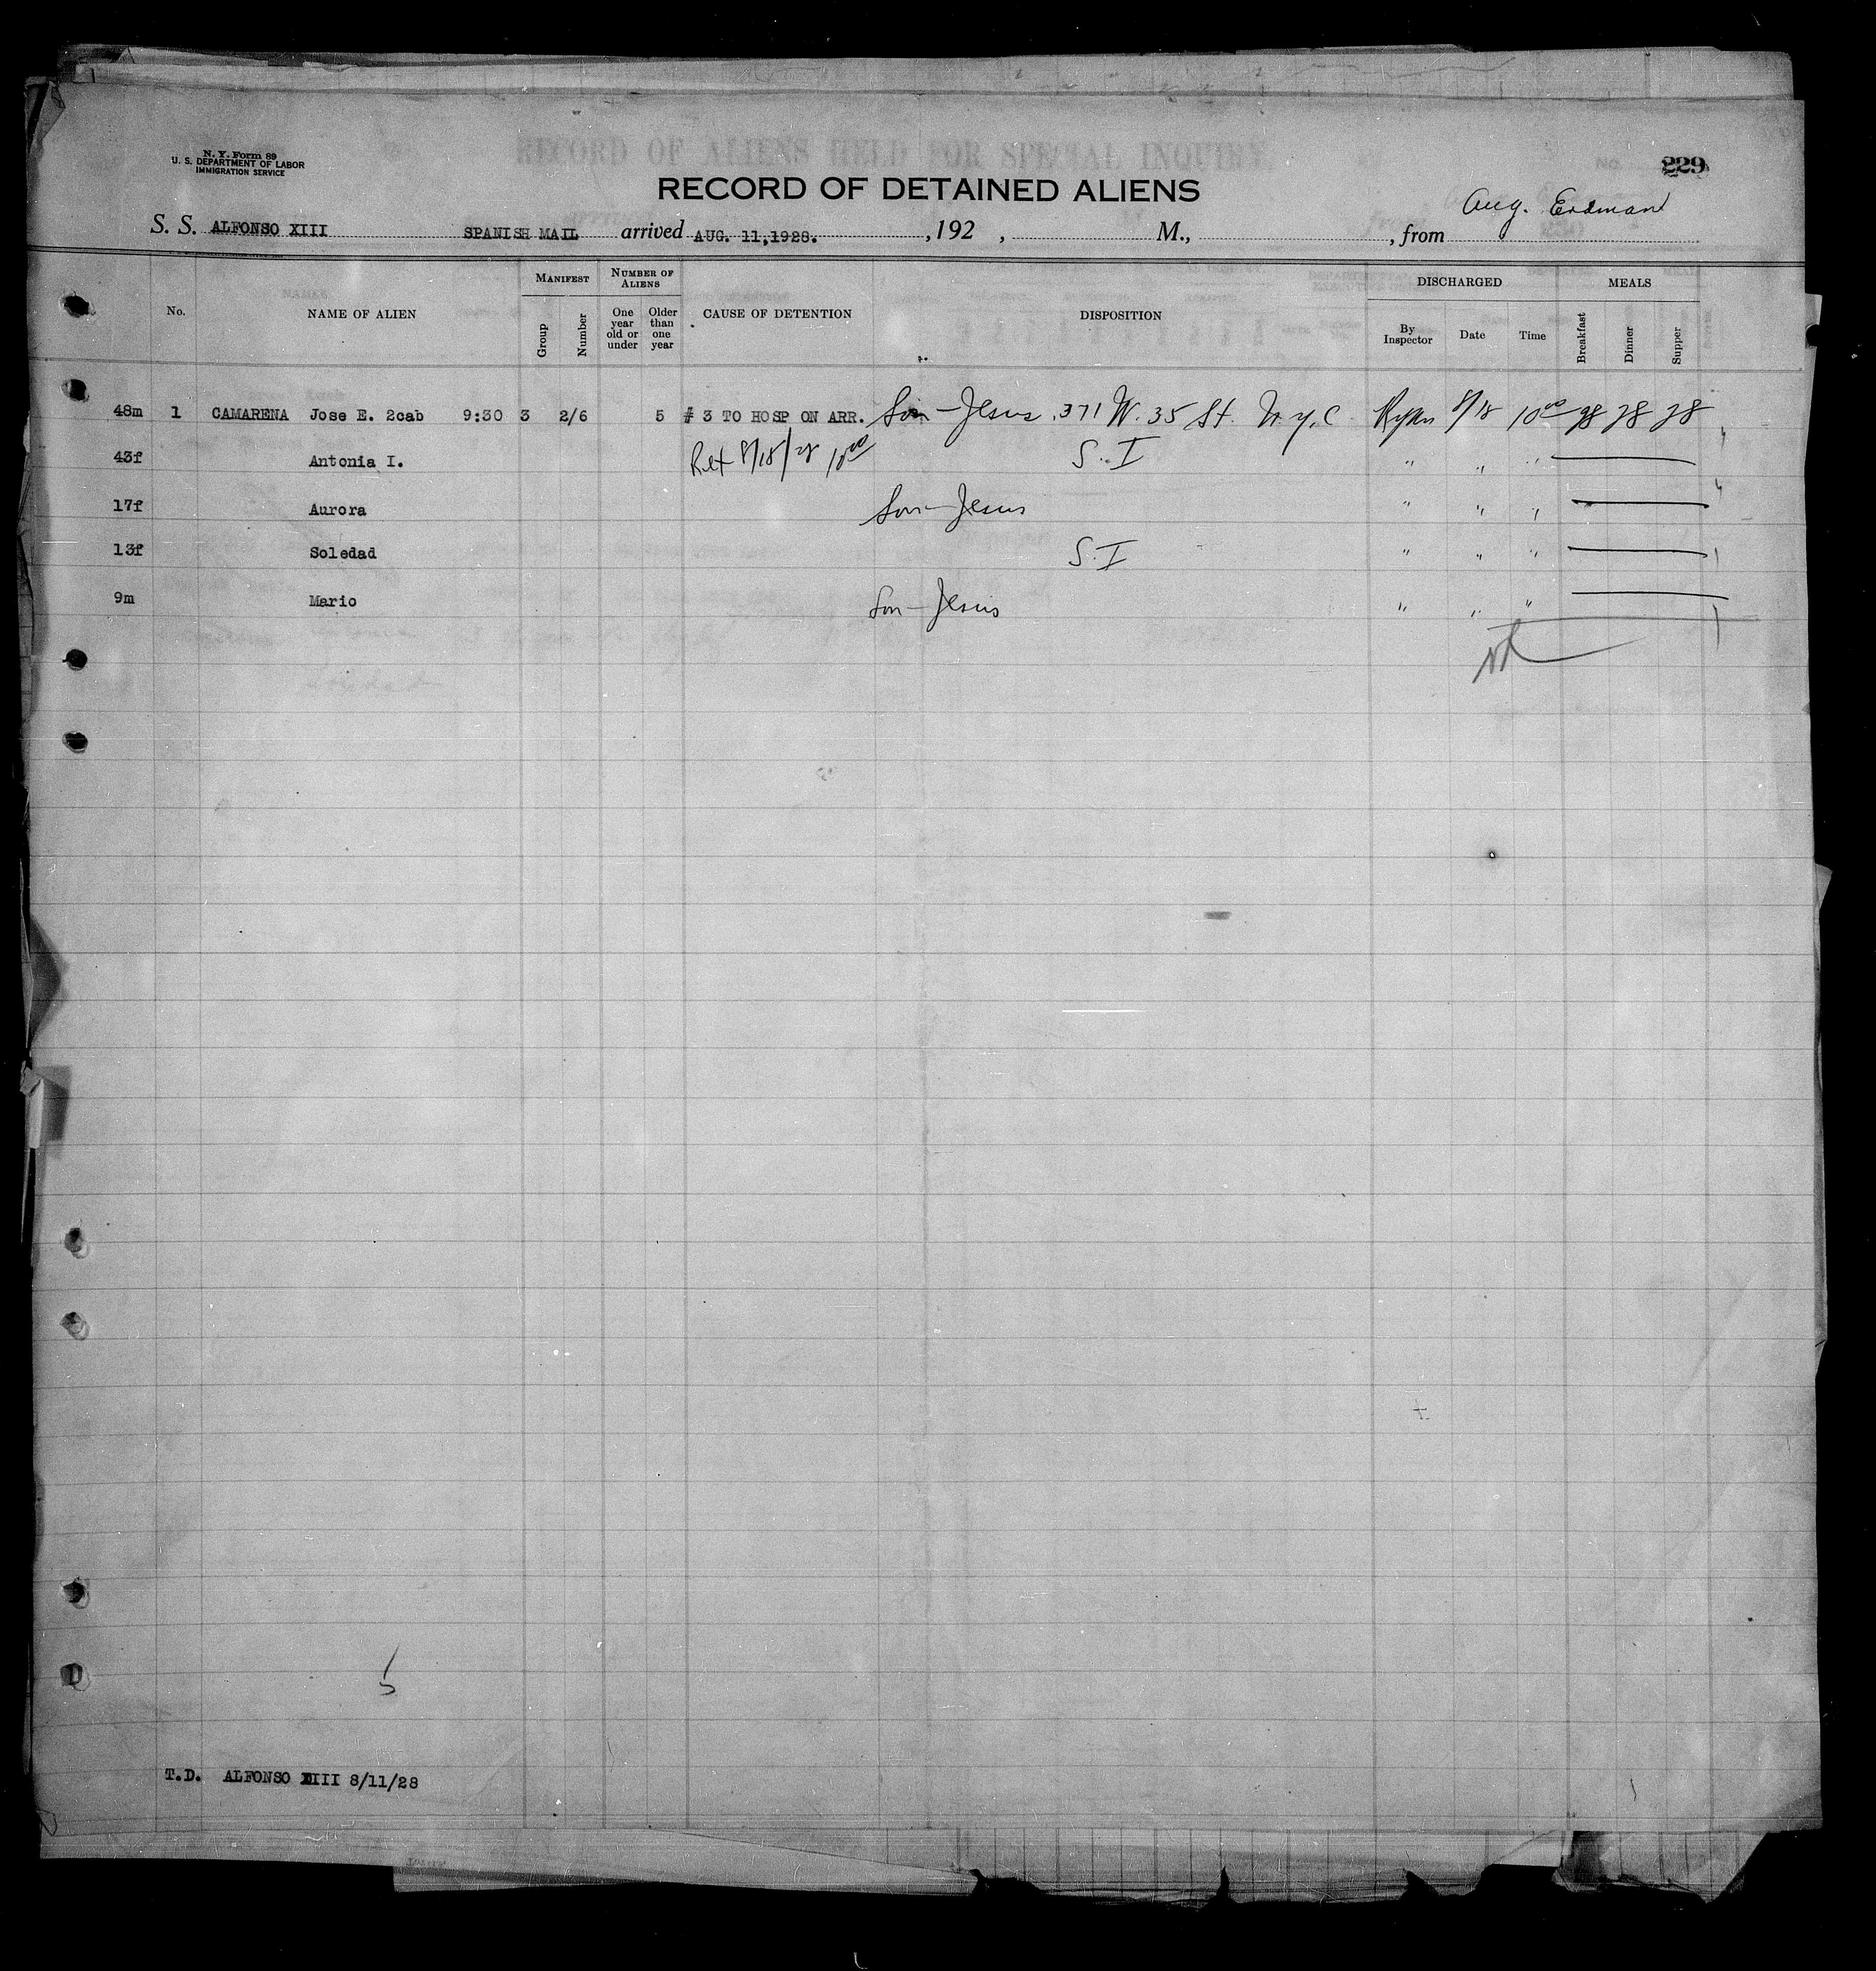 N. Y. Form 89
U. S. DEPARTMENT OF LABOR
IMMIGRATION SERVICE
RECORD OF ALIENS HELD FOR SPECIAL INQUIRY
No. 229
RECORD OF DETAINED ALIENS
Aug. Erdman
S. S. ALFONSO XIII SPANISH MAIL arrived AUG. 11,1928. , 192 , M., , from
No. NAME OF ALIEN MANIFEST Group Number NUMBER OF ALIENS One year old or under Older than one year CAUSE OF DETENTION DISPOSITION DISCHARGED By Inspector Date Time MEALS Breakfast Dinner Supper
48m 1 CAMARENA Jose E. 2cab 9:30 3 2/6 5 # 3 TO HOSP ON ARR. Son - Jesus, 371 W. 35 St. N.Y.C 8/18 10 00 28 28
43f Antonia I. 8/18/28 10 00 S. I " " "
17f Aurora Son - Jesus " " "
13f Soledad S. I " " "
9m Mario Son - Jesus " " "
5
T.D. ALFONSO XIII 8/11/28